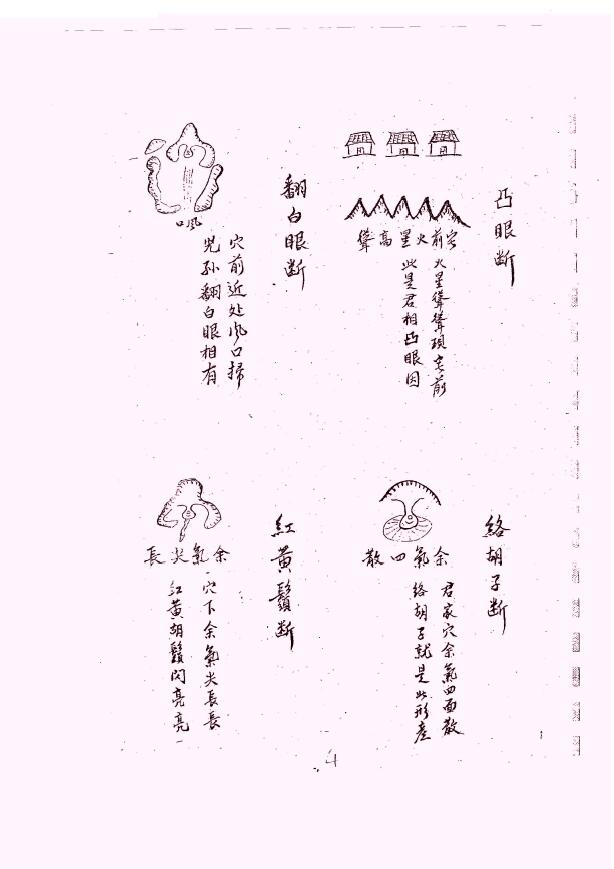 凸眼断
宅前火星高聳
火星聳聳現宅前
此是君相凸眼因
翻白眼断
風口
穴前近处風口掃
兒孫翻白眼相有
絡胡子断
余氣四散
君家穴余氣四面散
絡胡子就是此形產
紅黃鬚断
余氣尖長
穴下余氣尖長長
紅黃胡鬚閃亮亮
4